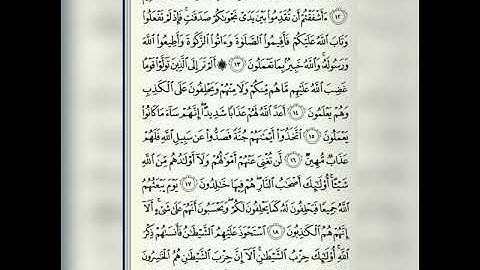 ١٢ ءَأَشْفَقْتُمْ أَن تُقَدِّمُوا۟ بَيْنَ يَدَىْ نَجْوَىٰكُمْ صَدَقَـٰتٍ ۚ فَإِذْ لَمْ تَفْعَلُوا۟
وَتَابَ ٱللَّهُ عَلَيْكُمْ فَأَقِيمُوا۟ ٱلصَّلَوٰةَ وَءَاتُوا۟ ٱلزَّكَوٰةَ وَأَطِيعُوا۟ ٱللَّهَ
وَرَسُولَهُۥ ۚ وَٱللَّهُ خَبِيرٌۢ بِمَا تَعْمَلُونَ ١٣ ۞ أَلَمْ تَرَ إِلَى ٱلَّذِينَ تَوَلَّوْا۟ قَوْمًا
غَضِبَ ٱللَّهُ عَلَيْهِم مَّا هُم مِّنكُمْ وَلَا مِنْهُمْ وَيَحْلِفُونَ عَلَى ٱلْكَذِبِ
وَهُمْ يَعْلَمُونَ ١٤ أَعَدَّ ٱللَّهُ لَهُمْ عَذَابًا شَدِيدًا ۖ إِنَّهُمْ سَآءَ مَا كَانُوا۟
يَعْمَلُونَ ١٥ ٱتَّخَذُوٓا۟ أَيْمَـٰنَهُمْ جُنَّةً فَصَدُّوا۟ عَن سَبِيلِ ٱللَّهِ فَلَهُمْ
عَذَابٌ مُّهِينٌ ١٦ لَّن تُغْنِىَ عَنْهُمْ أَمْوَٰلُهُمْ وَلَآ أَوْلَـٰدُهُم مِّنَ ٱللَّهِ
شَيْـًٔا ۚ أُو۟لَـٰٓئِكَ أَصْحَـٰبُ ٱلنَّارِ ۖ هُمْ فِيهَا خَـٰلِدُونَ ١٧ يَوْمَ يَبْعَثُهُمُ
ٱللَّهُ جَمِيعًا فَيَحْلِفُونَ لَهُۥ كَمَا يَحْلِفُونَ لَكُمْ ۖ وَيَحْسَبُونَ أَنَّهُمْ عَلَىٰ شَىْءٍ ۚ أَلَآ
إِنَّهُمْ هُمُ ٱلْكَـٰذِبُونَ ١٨ ٱسْتَحْوَذَ عَلَيْهِمُ ٱلشَّيْطَـٰنُ فَأَنسَىٰهُمْ ذِكْرَ
ٱللَّهِ ۚ أُو۟لَـٰٓئِكَ حِزْبُ ٱلشَّيْطَـٰنِ ۚ أَلَآ إِنَّ حِزْبَ ٱلشَّيْطَـٰنِ هُمُ ٱلْخَـٰسِرُونَ